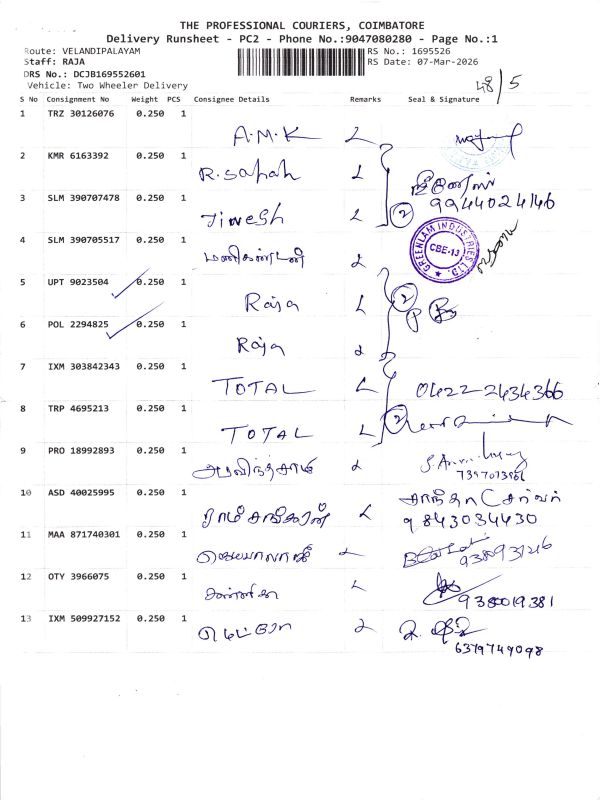 THE PROFESSIONAL COURIERS, COIMBATORE
Delivery Runsheet - PC2 - Phone No.:9047080280 - Page No.:1
Route: VELANDIPALAYAM RS No.: 1695526
Staff: RAJA RS Date: 07-Mar-2026
DRS No.: DCJB169552601
Vehicle: Two Wheeler Delivery 48/5
S No Consignment No Weight PCS Consignee Details Remarks Seal & Signature
1 TRZ 30126076 0.250 1
A.M.K
2 KMR 6163392 0.250 1
R. Sapah
3 SLM 390707478 0.250 1
9944024146
Jinesh 2
4 SLM 390705517 0.250 1
GREENLAM INDUSTRIES LTD. CBE-13
மணிகண்டன்
5 UPT 9023504 0.250 1
Raja 2
6 POL 2294825 0.250 1
Raja
7 IXM 303842343 0.250 1
TOTAL 0422-2434366
8 TRP 4695213 0.250 1
TOTAL 2
9 PRO 18992893 0.250 1
அரவிந்த்சாமி
7397073961
10 ASD 40025995 0.250 1
ராம்சங்கரன்
9843034430
11 MAA 871740301 0.250 1
9380931216
12 OTY 3966075 0.250 1
9380019381
13 IXM 509927152 0.250 1
மெட்ரோ
6379749098